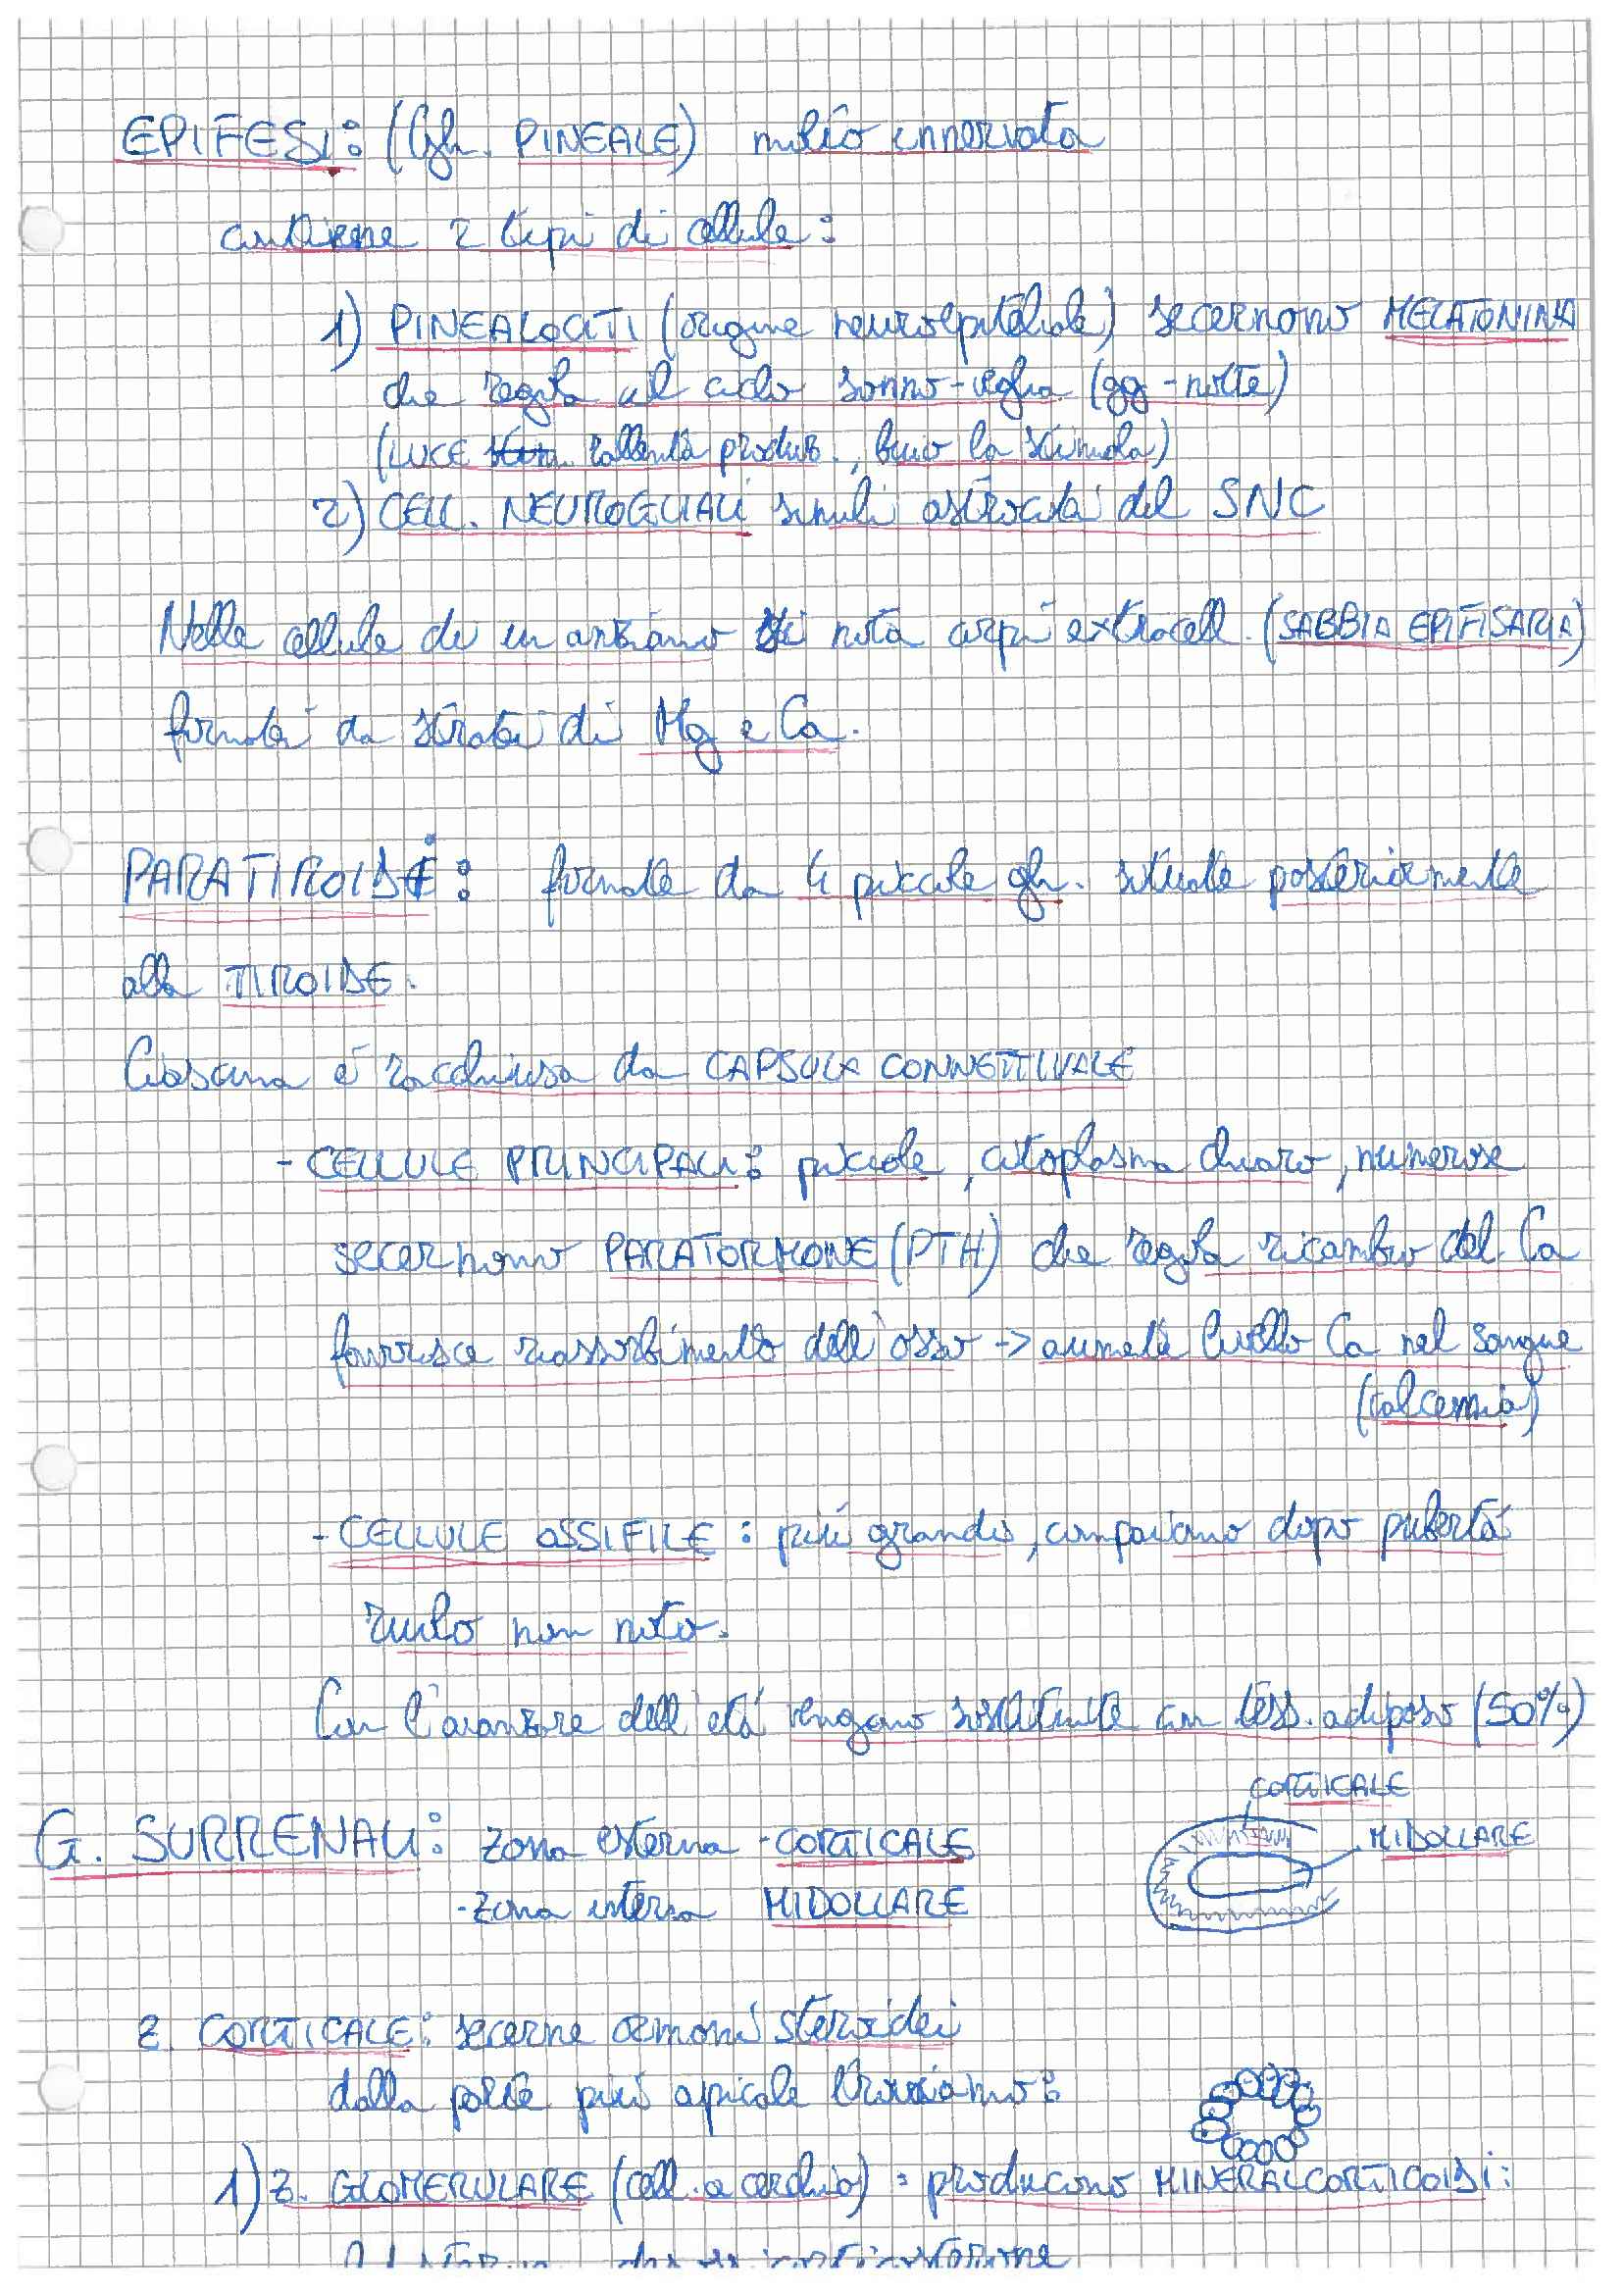 EPIFESI: (Gh. PINEALE) molto innervata
contiene 2 tipi di cellule:
1) PINEALOCITI (origine neuroepiteliale) secernono MELATONINA
che regola il ciclo sonno-veglia (gg-notte)
(LUCE rallenta produz., buio la stimola)
2) CELL. NEUROGLIALI simili astrociti del SNC
Nelle cellule di un anziano si nota corpi extracell. (SABBIA EPIFISARIA)
formati da strati di Mg e Ca.
PARATIROIDI: formate da 4 piccole gh. situate posteriormente
alla TIROIDE.
Ciascuna è racchiusa da CAPSULA CONNETTIVALE
- CELLULE PRINCIPALI: piccole, citoplasma chiaro, numerose
secernono PARATORMONE (PTH) che regola ricambio del Ca
favorisce riassorbimento dell'osso -> aumenta livello Ca nel sangue
(calcemia)
- CELLULE OSSIFILE: più grandi, compaiono dopo pubertà
ruolo non noto.
Con l'avanzare dell'età vengono sostituite con tess. adiposo (50%)
CORTICALE
G. SURRENALI: zona esterna - CORTICALE
MIDOLLARE
- zona interna MIDOLLARE
Z. CORTICALE: secerne ormoni steroidei
dalla parte più apicale troviamo:
1) Z. GLOMERULARE (cell. a cerchio): producono MINERALCORTICOIDI: